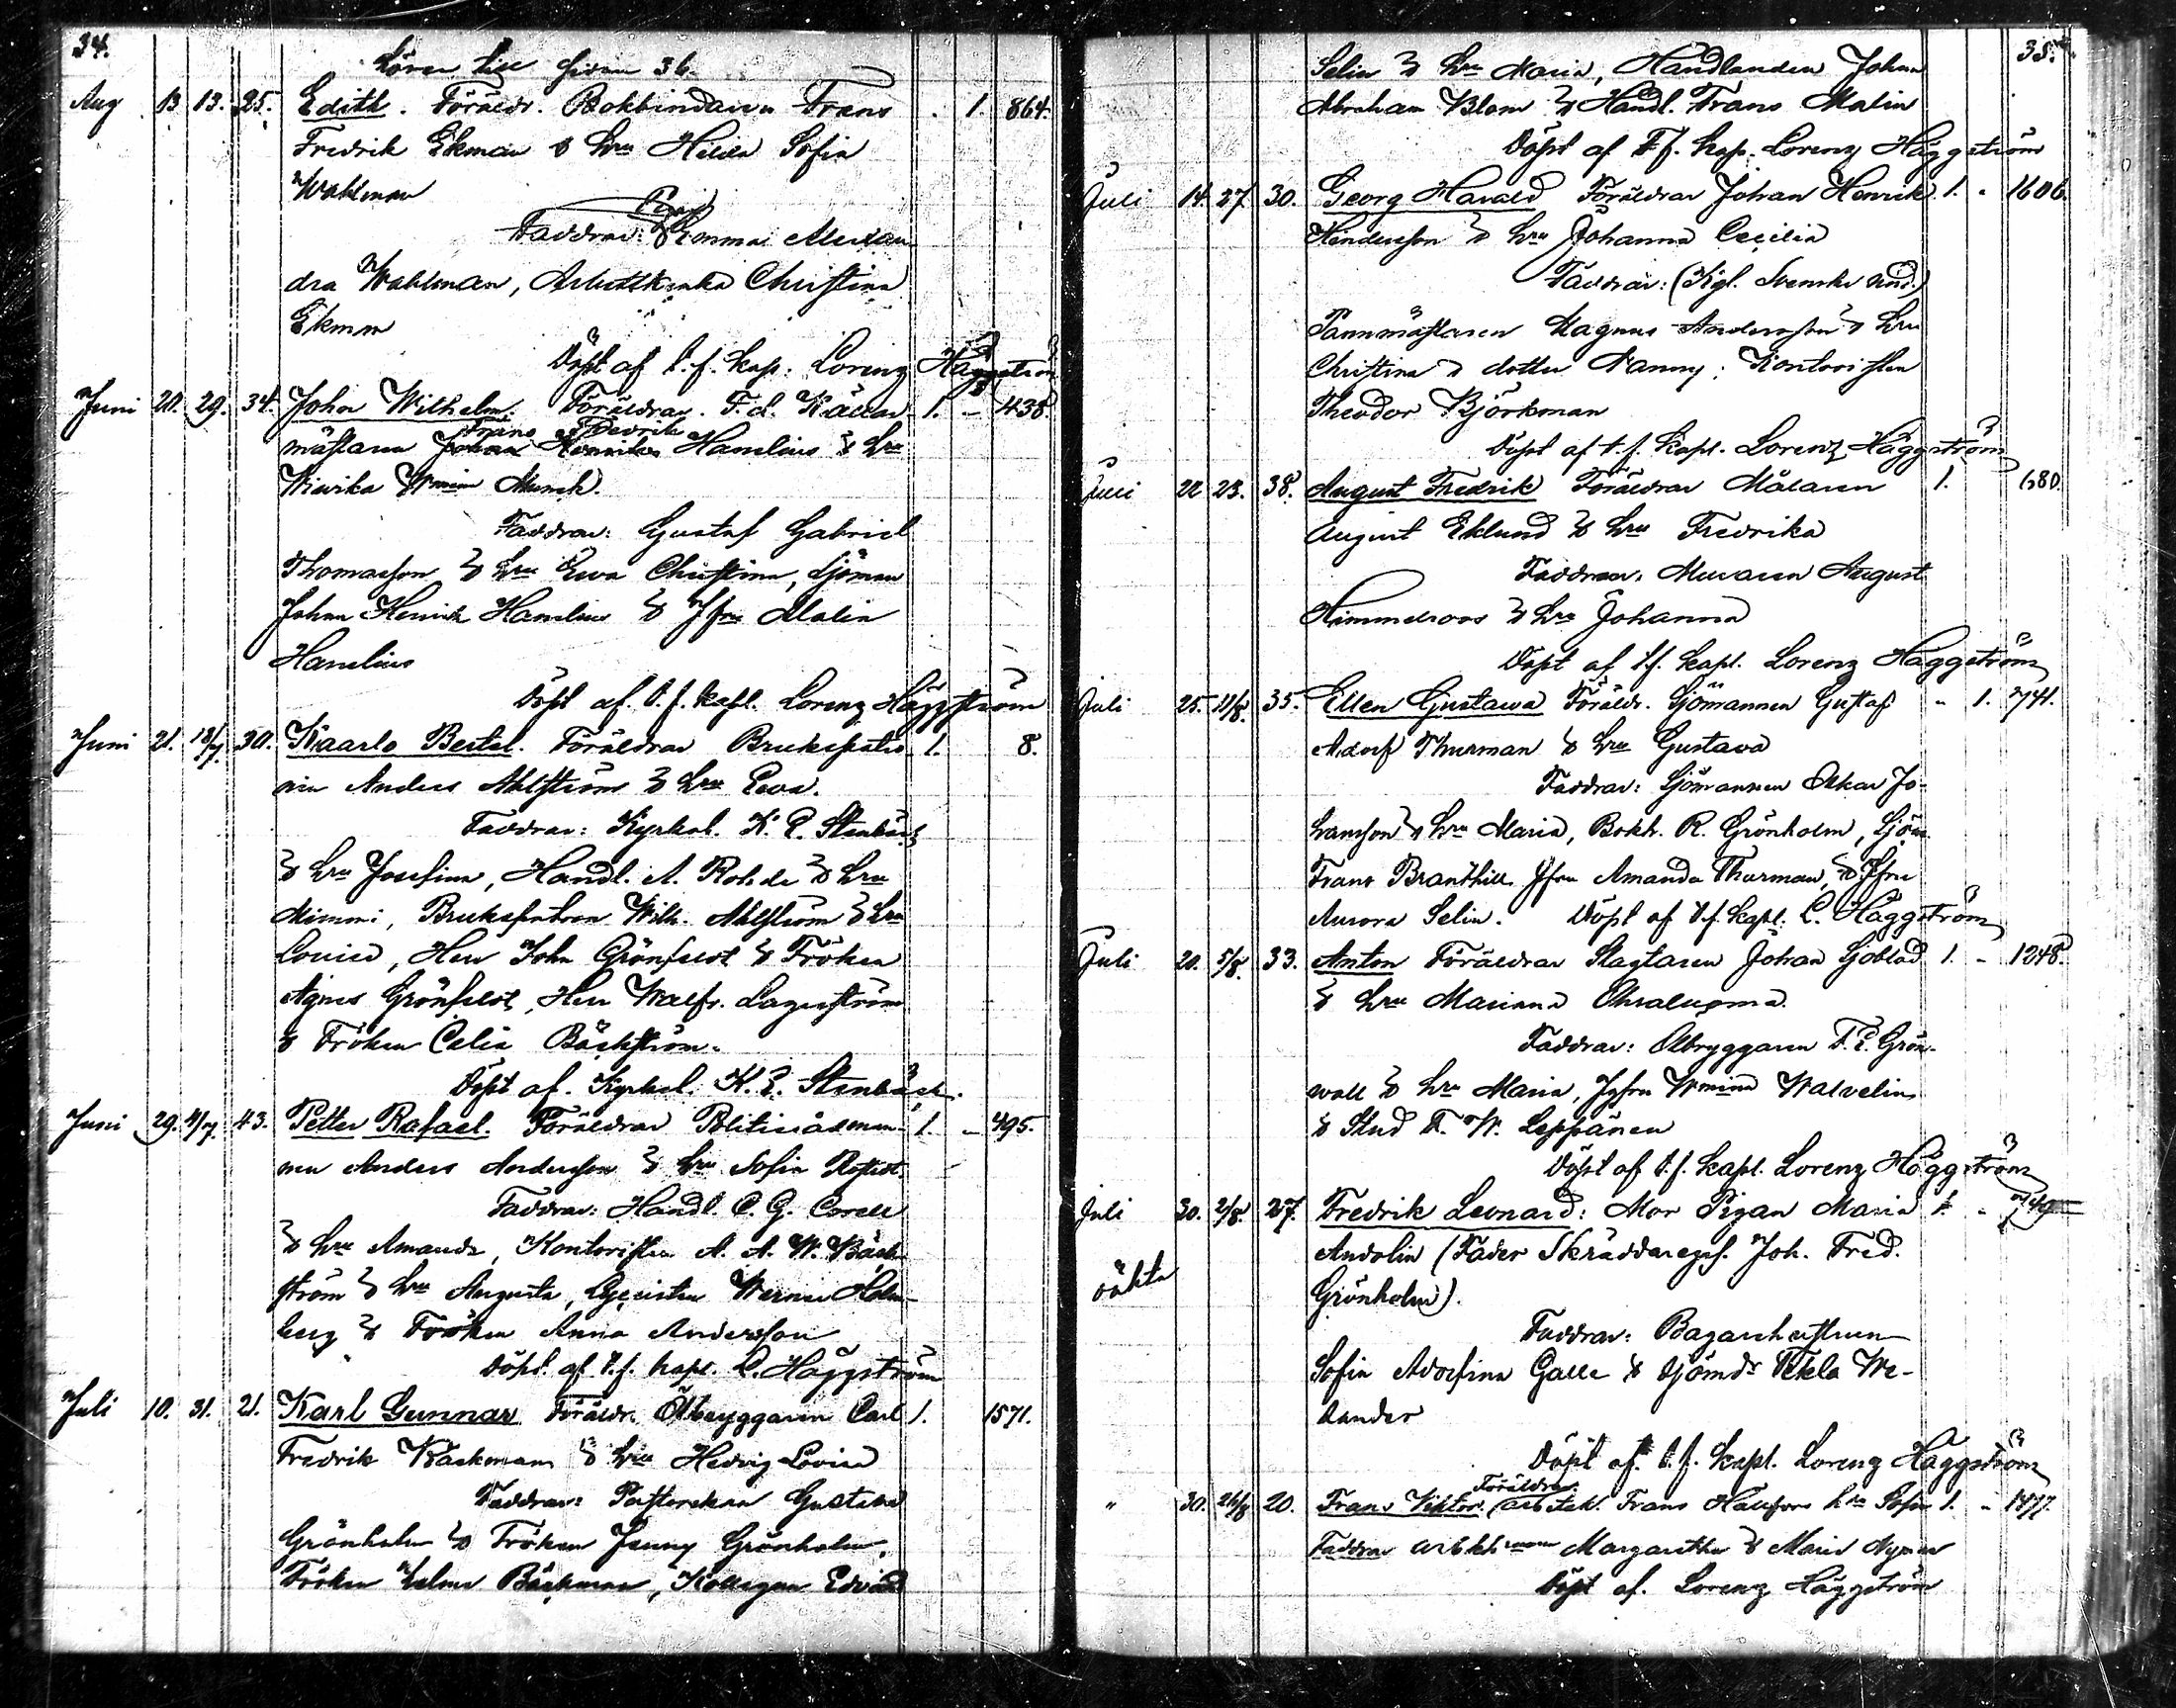 34.
Hörer till sidan 36.
Aug 13 13. 25. Edith. Föräldr. Bokbindaren Frans . 1. 864.
Fredrik Ekman & hru Hilda Sofia
Wahlman
Faddrar: Pigan Emma Alexan
dra Wahlman, Arbetsk:enka Christina
Ekman
Döpt af t. f. Kap: Lorenz Häggström
Juni 20. 29. 34. John Wilhelm. Föräldrar. F.d. Källar 1. - 438.
Frans Fredrik
mästaren Johan Henrik Hamelius & hru
Wivika Wmina Munck.
Faddrar: Gustaf Gabriel
Thomasson & hru Ewa Christina, Sjöman
Johan Henrik Hamelius & Jfru Malin
Hamelius
Döpt af. t. f. kapl. Lorenz Häggström
Juni 21. 18/7 30. Kaarlo Bertel. Föräldrar Brukspatro 1. 8.
nen Anders Ahlström & hru Eva.
Faddrar: Kyrkoh. K. E. Stenbäck
& hru Josefina, Handl. A. Rohde & hru
Mimmi, Brukspatron Wilh. Ahlström & hru
Lovisa, Herr John Grönfeldt & Fröken
Agnes Grönfeldt, Herr Walfr. Lagerström
& Fröken Celia Bäckström.
Döpt af. Kyrkoh. K. E. Stenbäck.
Juni 29. 4/7 43. Petter Rafael. Föräldrar Politivaktman- 1. - 495.
nen Anders Andersson & hru Sofia
Faddrar: Handl. C. G. Corell
& hru Amanda, Kontoristen A. A. W. Bäck
ström & hru Augusta, Lyceisten Werner Holm-
berg & Fröken Anna Andersson
Döpt. af t. f. kapl. L. Häggström
Juli 10. 31. 21. Karl Gunnar Föräldr. Ölbryggaren Carl 1. 1571.
Fredrik Bäckman & hru Hedvig Lovisa
Faddrar: Pastorskan Gustava
Grönholm & Fröken Jenny Grönholm,
Fröken Selma Bäckman, Kollegan Edvard
35.
Selin & hru Maria, Handlanden Johan
Abraham Blom & Handl. Frans Malin
Döpt af t. f. kap. Lorenz Häggström
Juli 14. 27. 30. Georg Harald Föräldrar Johan Henrik 1. - 1606.
Hindersson & hru Johanna Cecilia
Faddrar: (Kgl. Svenske Und.)
Pannmästaren Magnus Andersson & hru
Christina & dotter Nanny; Kontoristen
Theodor Björkman
Döpt af t. f. Kapl. Lorenz Häggström
Juli 22 23. 38. August Fredrik Föräldrar Målaren 1. 680.
August Eklund & hru Fredrika
Faddrar: Muraren August
Himmelroos & hru Johanna
Döpt af t. f. kapl. Lorenz Häggström
Juli 25. 11/8. 35. Ellen Gustava Föräldr. Sjömannen Gustaf " 1. 741.
Adolf Thurman & hru Gustava
Faddrar: Sjömannen Oskar Jo-
hansson & hru Maria, Bokh. R. Grönholm, Sjöm.
Frans Branthill Jfru Amanda Thurman, & Jfru
Aurora Selin. Döpt af t. f. kapl. L. Häggström
Juli 20. 5/8. 33. Anton Föräldrar Slagtaren Johan Sjöblad 1. - 1248.
& hru Mariana Ohraluoma.
Faddrar: Ölbryggaren F. E. Grön-
wall & hru Maria, Jgfru Wmina Walvelin,
& Stud F. W. Leppänen
Döpt af t. f. kapl. Lorenz Häggström
Juli 30. 2/8. 27. Fredrik Leonard: Mor Pigan Maria 1. - 749
Andolin (Fader Skräddareges. Joh. Fred.
oäkta
Grönholm).
Faddrar: Bagarehustrun
Sofia Adolfina Galle & Sjömds Tekla We-
lander
Döpt af. t. f. kapl. Lorenz Häggström
" 30. 26/8 20. Frans Viktor. Föräldrar. Frans Hallfors hru Sofia 1. - 1477.
Faddrar Margaretha & Maria Nyman
Döpt af. Lorenz Häggström